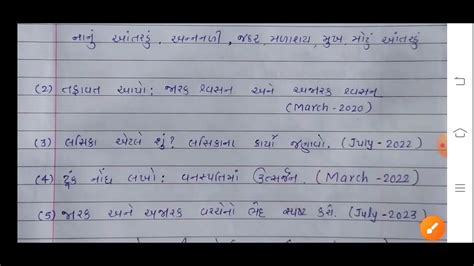 નાનું આંતરડું, અન્નનળી, જઠર, મળાશય, મુખ, મોટું આંતરડું
(2) તફાવત આપો: જારક શ્વસન અને અજારક શ્વસન.
(March-2020)
(3) લસિકા એટલે શું? લસિકાના કાર્યો જણાવો. (July-2022)
(4) ટૂંક નોંધ લખો: વનસ્પતિમાં ઉત્સર્જન. (March-2022)
(5) જારક અને અજારક વચ્ચેનો ભેદ સ્પષ્ટ કરો. (July-2023)